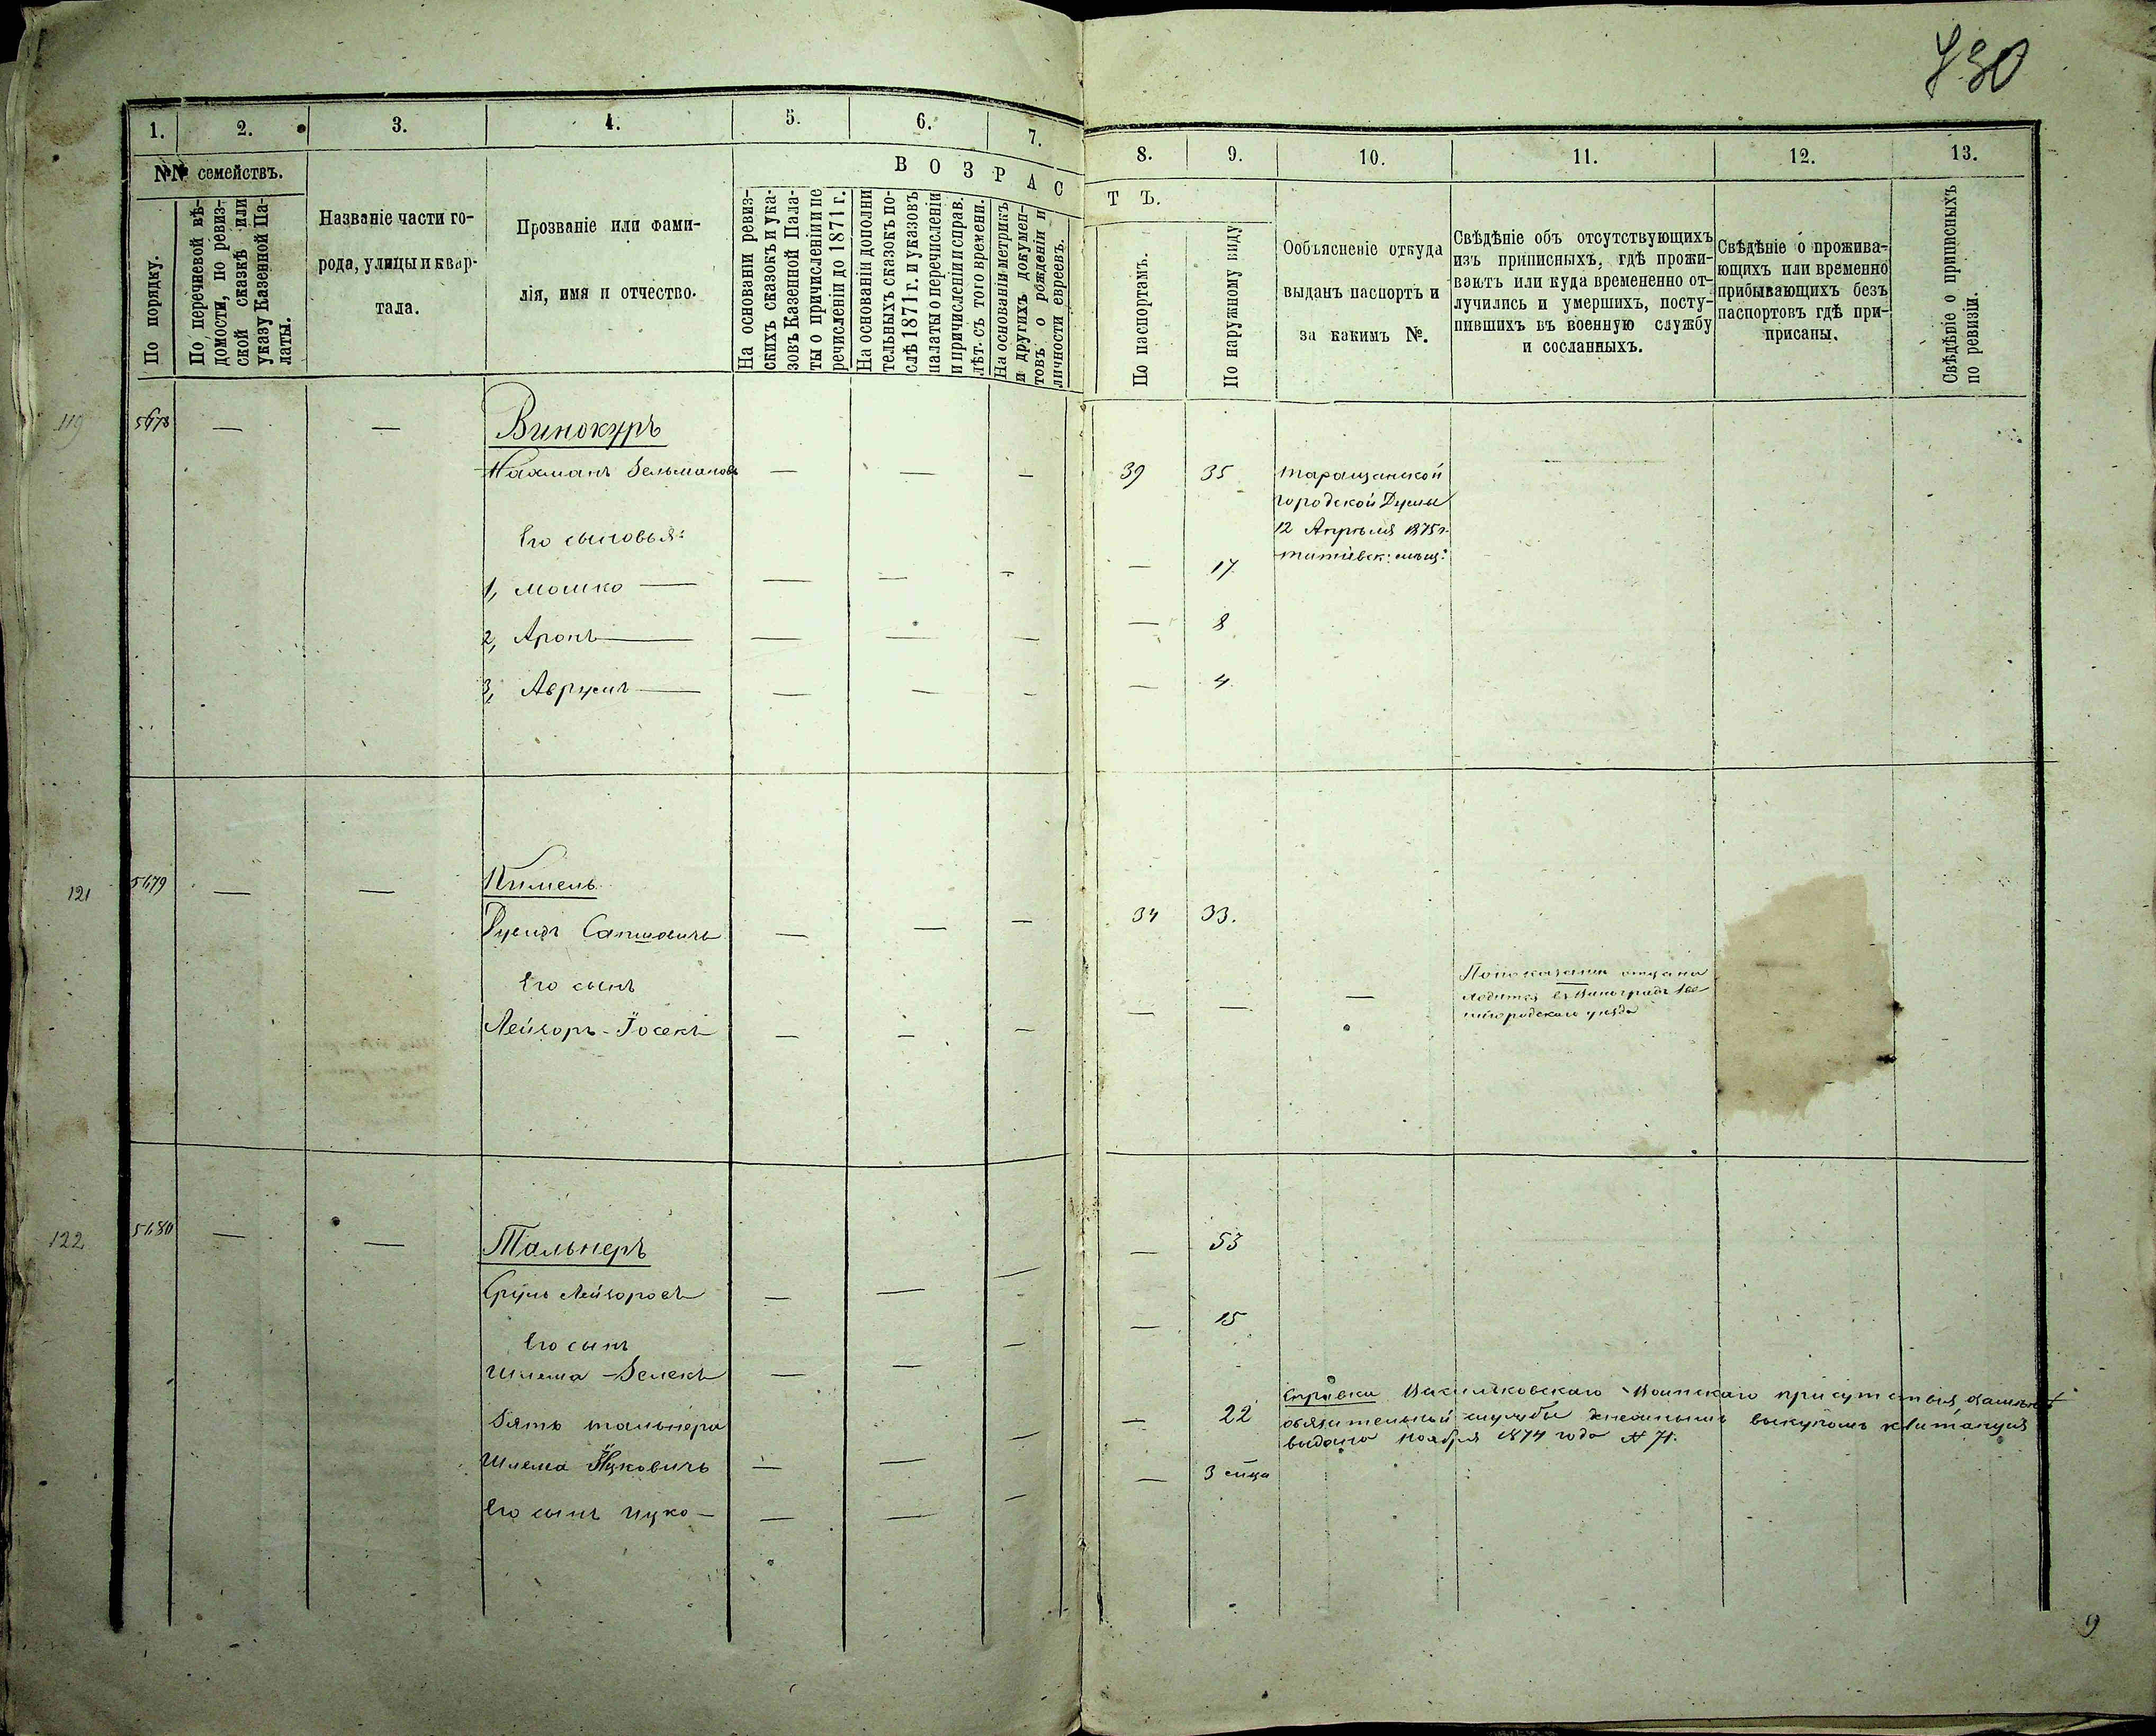 730
1. 2. 3. 4. 5. 6. 7.
8. 9. 10. 11. 12. 13.
№№ семействъ.
В О З Р А С
Т Ъ.
По порядку.
По перечневой вѣ-
домости, по ревиз-
ской сказкѣ или
указу Казенной Па-
латы.
Названіе части го-
рода, улицы и квар-
тала.
Прозваніе или фами-
лія, имя и отчество.
На основаніи ревиз-
скихъ сказокъ и ука-
зовъ Казенной Пала-
ты о причисленіи и пе
речисленіи до 1871 г.
На основаніи дополни
тельныхъ сказокъ по-
слѣ 1871 г. и указовъ
палаты о перечисленіи
и причисленіи и справ.
лѣт. съ того времени.
На основаніи метрикъ
и другихъ докумен-
товъ о рожденіи и
личности евреевъ.
По паспортамъ.
По наружному виду
Ообъясненіе откуда
выданъ паспортъ и
за какимъ №.
Свѣдѣніе объ отсутствующихъ
изъ приписныхъ, гдѣ прожи-
ваютъ или куда временено от-
лучились и умершихъ, посту-
пившихъ въ военную службу
и сосланныхъ.
Свѣдѣніе о прожива-
ющихъ или временно
прибывающихъ безъ
паспортовъ гдѣ при-
приписаны.
Свѣдѣніе о приписныхъ
по ревизіи.
119 5678 — — Винокуръ
Нахманъ Зельмановъ — — — 39 35 Таращанской
городской Думы
Его сыновья: 12 Апрѣля 1875 г.
1, Мошко — — — — — 17
2, Аронъ — — — — — 8
3, Аврумъ — — — — — 4
121 5679 — — Кимель
— — — 34 33.
Его сынъ
Лейзоръ-Іосекъ — — — — — —
уѣзда
122 5680 — — Тальнеръ
Сруль Лейзоровъ — — — — 53
Его сынъ
Шлема-Зелекъ — — — — 15
Зять Тальнера
Шлема Ицковичъ — — — — 22
Справки Васильковскаго Воинскаго присутствія
обязательной службы выкупомъ квитанція
выдана Ноября 1874 года № 71.
Его сынъ Ицко — — — — — 3
9